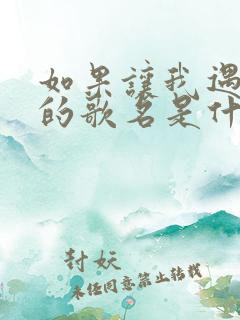 如果讓我遇
的歌名是什
封妖
未经同意禁止转载